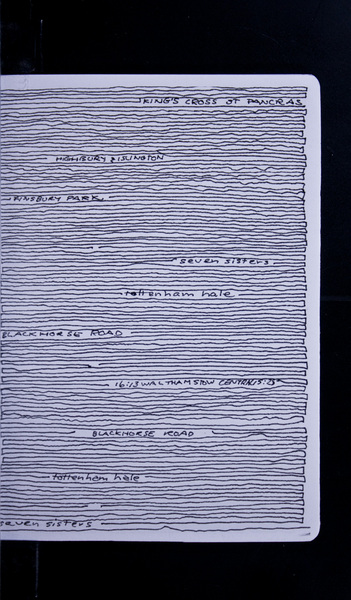 KING'S CROSS ST PANCRAS
HIGHBURY & ISLINGTON
FINSBURY PARK
seven sisters
tottenham hale
BLACKHORSE ROAD
16:13 WALTHAMSTOW CENTRAL
BLACKHORSE ROAD
tottenham hale
seven sisters